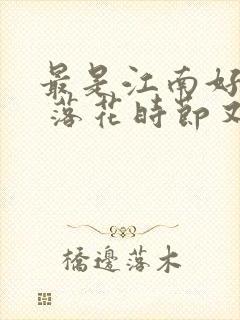 最是江南好
落花時節又
橋邊落木